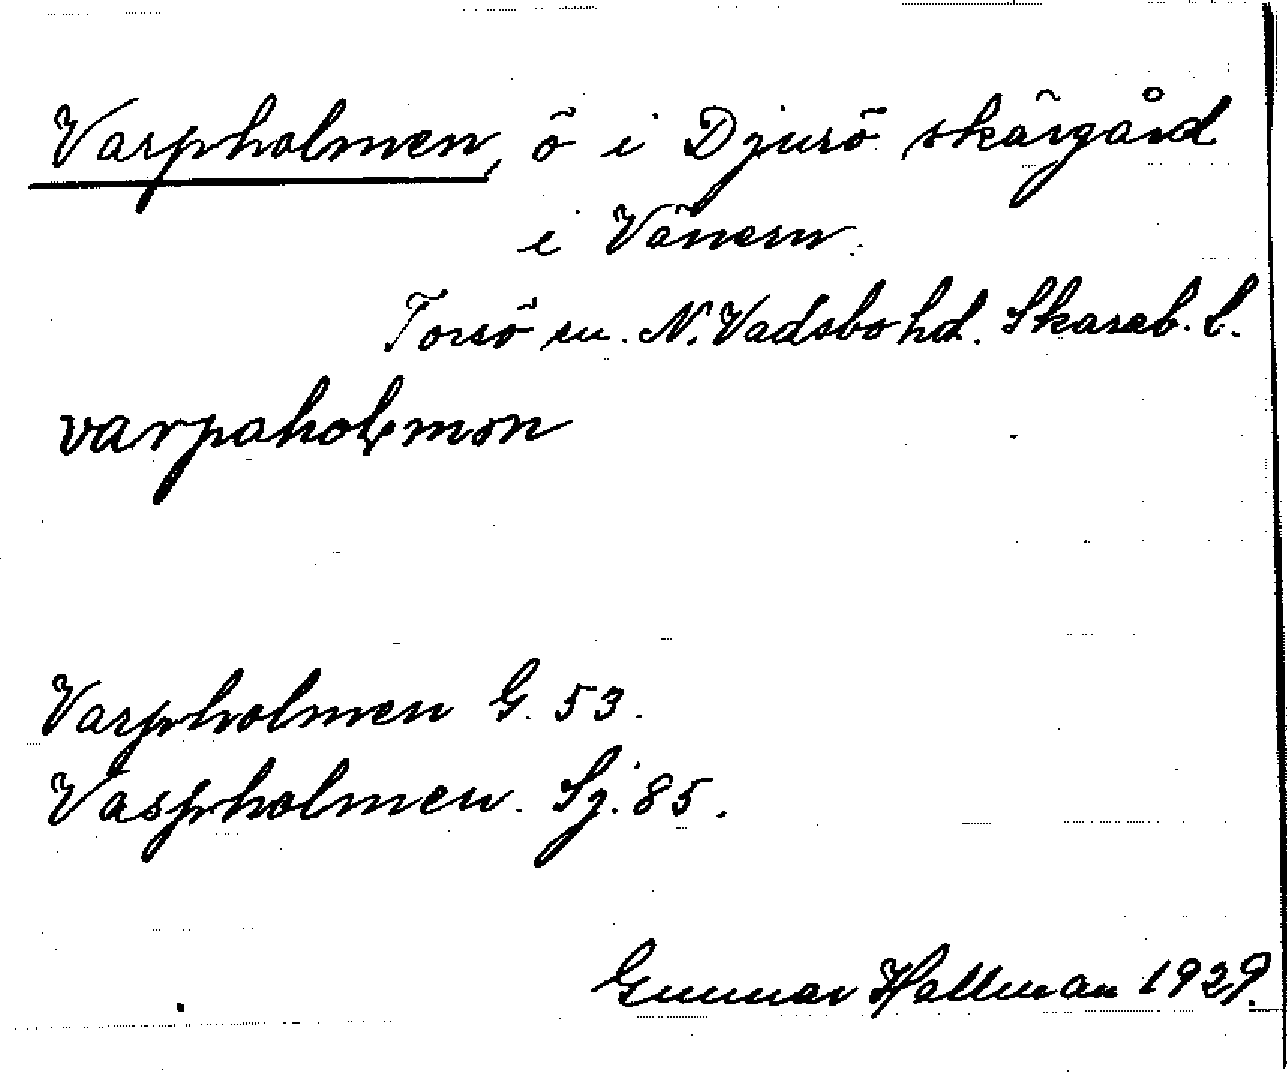 Varpholmen, ö i Djurö skärgård
i Vänern.
Torsö sn. N. Vadsbo hd. Skarab. l.
varpaholmən
Varpholmen G. 53.
Varpholmen. Sj. 85.
Gunnar Hallman 1929.